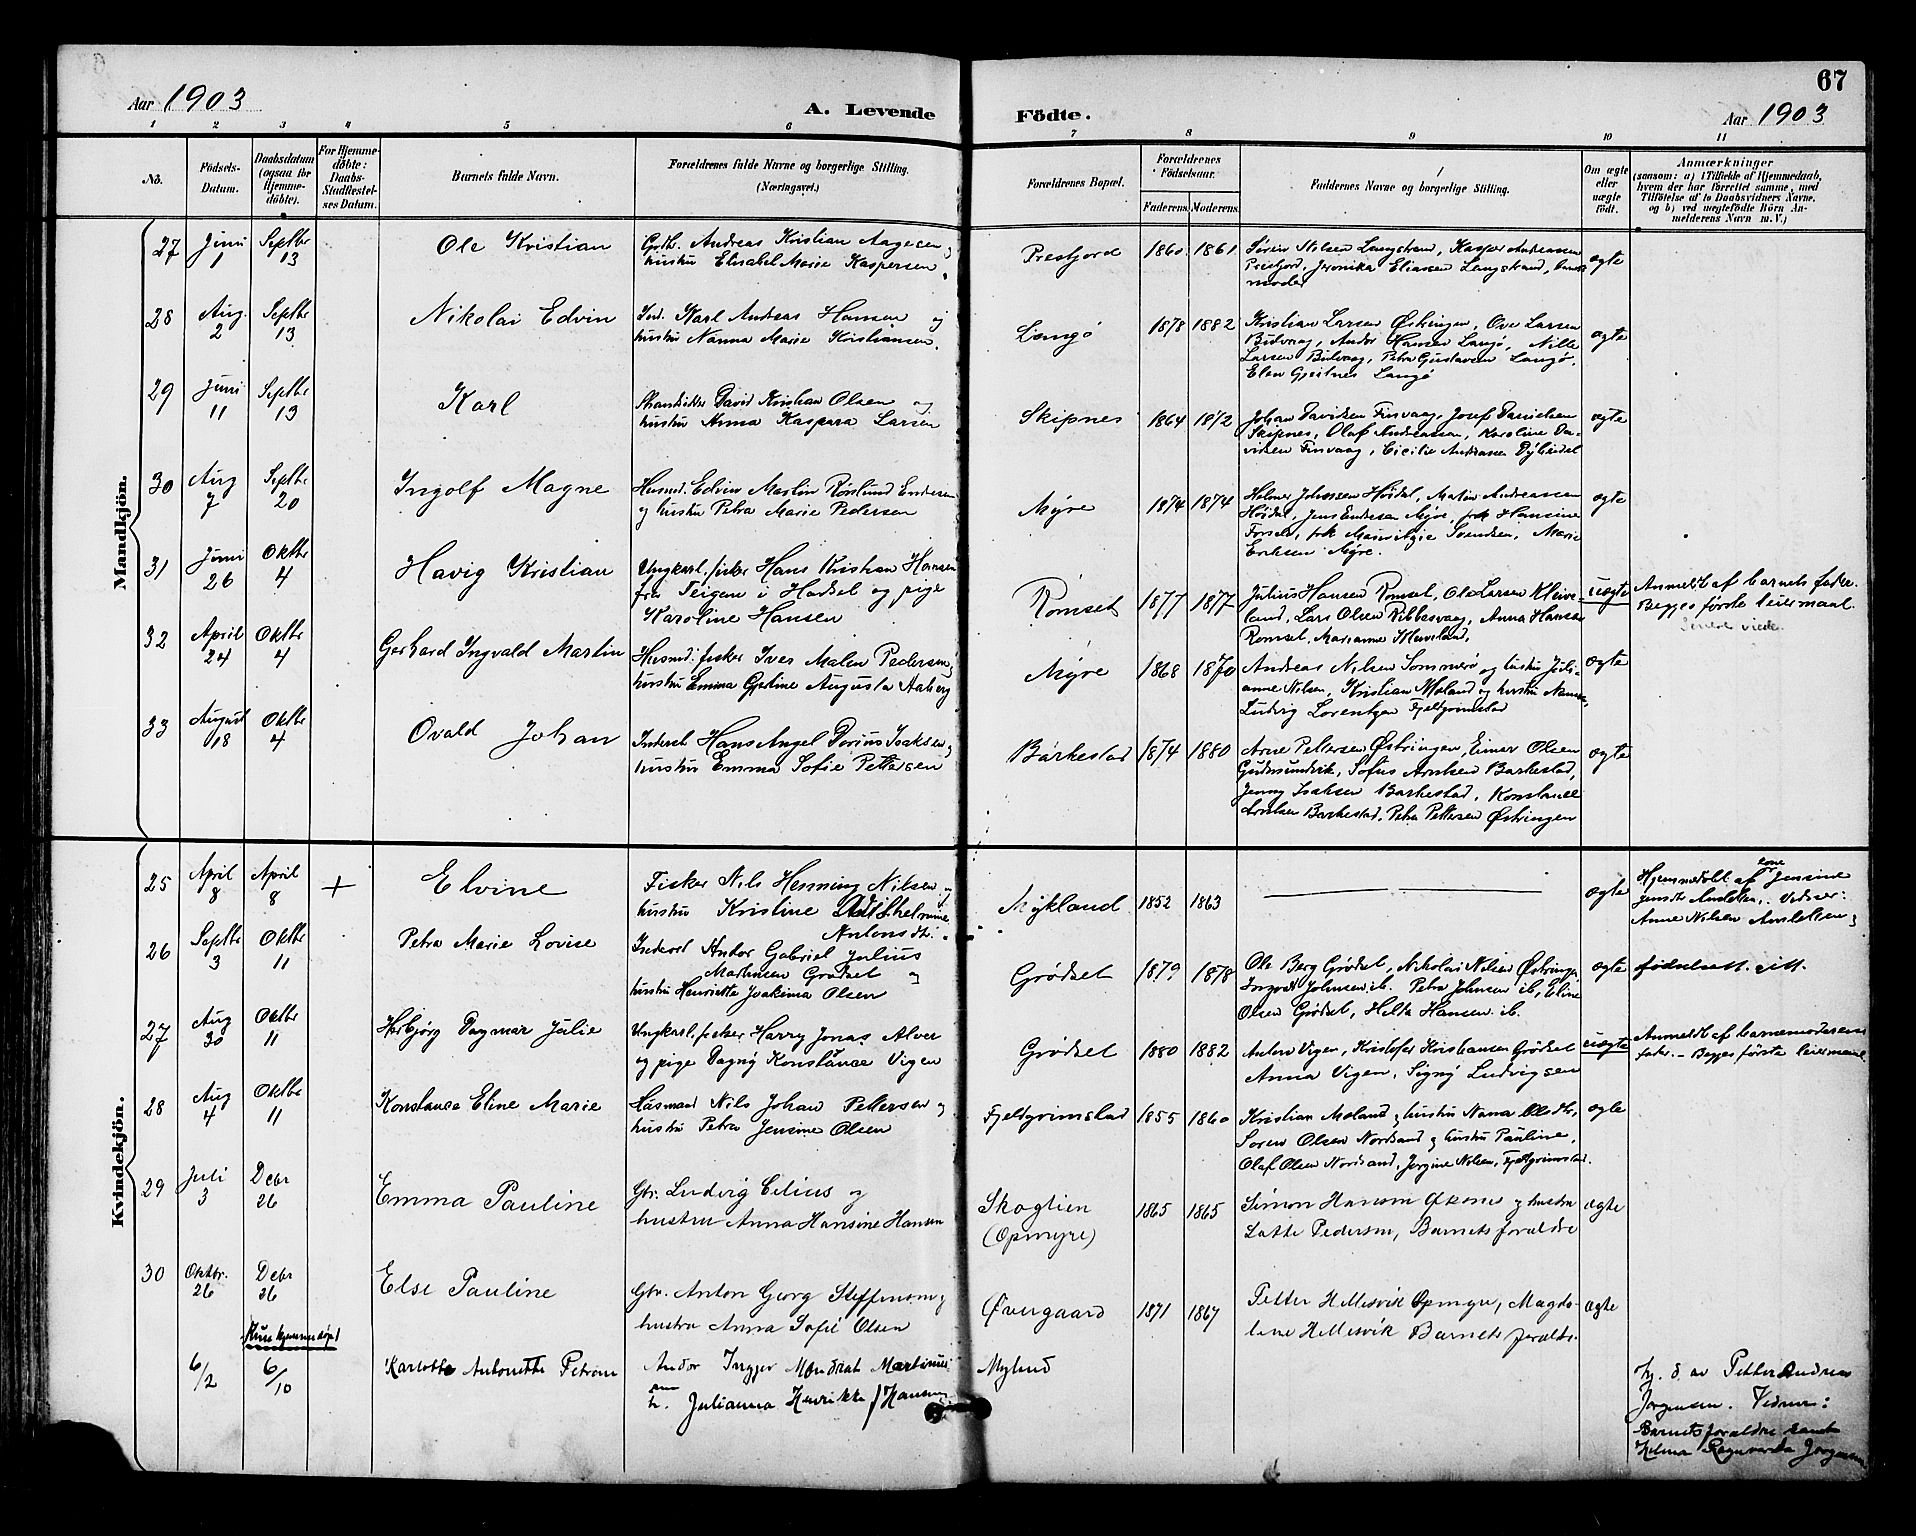 67
Aar 1903
A. Levende Födte.
Aar 1903
1 2 3 4 5 6 7 8 9 10 11
No.
Födsels-
Datum.
Daabsdatum
(ogsaa for
Hjemme-
döbte).
For Hjemme-
döbte:
Daabs-
Stadfæstel-
ses Datum.
Barnets fulde Navn.
Forældrenes fulde Navne og borgerlige Stilling.
(Næringsvei.)
Forældrenes Bopæl.
Forældrenes
Födselsaar.
Faderens. Moderens.
Faddernes Navne og borgerlige Stilling.
Om ægte
eller
uægte
födt.
Anmærkninger
(saasom: a) i Tilfælde af Hjemmedaab,
hvem der har forrettet samme, med
Tilföielse af to Daabsvidners Navne,
og b) ved uægtefödte Börn An-
melderens Navn m. V.)
Mandkjön.
27 Juni 1 Septbr 13 Ole Kristian
Grdbr. Andreas Kristian Aagesen og
hustru Elisabet Marie Kaspersen.
Presfjord 1860. 1861
Søren Nilsen Langstrand, Kasper Andreassen
Presfjord, Jeronika Eliassen Langstrand, barnets
moder
ægte
28 Aug. 2 Septbr 13 Nikolai Edvin
Ind. Karl Andreas Hansen og
hustru Nanna Marie Kristiansen.
Langø 1878 1882
Kristian Larsen Østringen, Ove Larsen
Bidvaag, Andor Hansen Langø, Nille
Larsen Bidvaag, Petra Gustavsen Langø,
Elen Gjeitnes Langø
ægte
29 Juni 11 Septbr 13 Karl
Strandsidder David Kristian Olsen og
hustru Anna Kaspara Larsen
Skipnes 1864 1872
Johan Davidsen Finvaag, Josef Danielsen
Skipnes, Olaf Andreassen, Karoline Da-
vidsen Finvaag, Cicilie Andreassen
ægte
30 Aug 7 Septbr 20 Ingolf Magne
Husmd. Edvin Martin Røslund Endresen
og hustru Petra Marie Pedersen
Myre 1874 1874
Helmer Johnsen Høidal, Martin Andreassen
Høidal, Jens Endresen Myre, frk Hansine
Forseth, frk Svendsen, Marie
Eriksen Myre.
ægte
31 Juni 26 Oktbr 4 Havig Kristian
Ungkarl, fisker Hans Kristian Hansen
fra Teigen i Hadsel og pige
Karoline Hansen
Romset 1877 1877
Julius Hansen Romset, Ole Larsen Kleive-
land, Lars Olsen Ribbesvaag, Anna Hansen
Romset, Marianne Kleiveland,
uægte
Anmeldt af barnets fader.
Begges første leiermaal.
Senere viede.
32 April 24 Oktbr 4 Gerhard Ingvald Martin
Husmd. fisker Iver Malen Pedersen og
hustru Emma Gjertine Augusta Aaberg
Myre 1868 1870
Andreas Nilsen Sommerø og hustru Juli-
anne Nilsen, Kristian Moland og hustru Nanna,
Ludvig Lorentzen Fjeldgrimstad
ægte
33 August 18 Oktbr 4 Ovald Johan
Inderst Hans Angel Dorius Isaksen og
hustru Emma Sofie Pettersen
Barkestad 1874 1880
Arne Pettersen Østringen, Einar Olsen
Gudmundvik, Sofus Arntsen Barkestad,
Jenny Isaksen Barkestad, Konstance
Arntsen Barkestad, Petra Pettersen Østringen
ægte
Kvindekjön.
25 April 8 April 8 + Elvine
Fisker Nils Henning Nilsen og
hustru Kristine
Antonsdtr.
Mykland 1852 1863
ægte
Hjemmedøbt af kone Jensine
Anne Nilsen
26 Septbr 3 Oktbr 11 Petra Marie Lovise
Inderst Andor Gabriel Julius
Martinsen Grødset og
hustru Henriette Joakima Olsen
Grødset 1879 1878
Ole Berg Grødset, Nikolai Nilsen Østringen
Ingvat Johnsen ib. Petra Johnsen ib, Eline
Olsen Grødset, Hilda Hansen ib.
ægte
fødselsatt. sitt.
27 Aug 30 Oktbr 11 Herbjørg Dagmar Julie
Ungkarl, fisker Harry Jonas Alver
og pige Dagny Konstance Vigen
Grødset 1880 1882
Anton Vigen, Kristofer Kristiansen Grødset
Anna Vigen, Signy Ludvigsen
uægte
Anmeldt af barnemoderens
fader. – Begges første leiermaal
28 Aug 4 Oktbr 11 Konstance Eline Marie
Husmand Nils Johan Pettersen og
hustru Petra Jensine Olsen
Fjeldgrimstad 1855 1860
Kristian Moland og hustru Nanna Olsdtr,
Søren Olsen Nordsand og hustru Pauline,
Olaf Olsen Nordsand, Jørgine Nilsen, Fjeldgrimstad.
ægte
29 Juli 3 Debr 26 Emma Pauline
Gbr. Ludvig Edius og
hustru Anna Hansine Hansen
Skoglien
(Opmyre)
1865 1865
Simon Hansen Økones og hustru
Lotte Pedersen, Barnets forældre
ægte
30 Oktbr. 26 Debr 26 Else Pauline
Gbr. Anton Georg Steffensen og
hustru Anna Sofie Olsen
Øvergaard 1871 1867
Petter Hellesvik Opmyre, Magda-
lene Hellesvik Barnets foreldre.
ægte
Kun hjemmedøpt
6/2 6/10 Karlotte Antonette Petrine
Andor Ingger Mondrat Martinus-
sen
h. Julianna Henrikke f Hansen
Myrlund
hj. d. av Petter Andreas
Jørgensen. Vidner:
Barnets forældre samt
Helma Ragnvarda Jørgensen